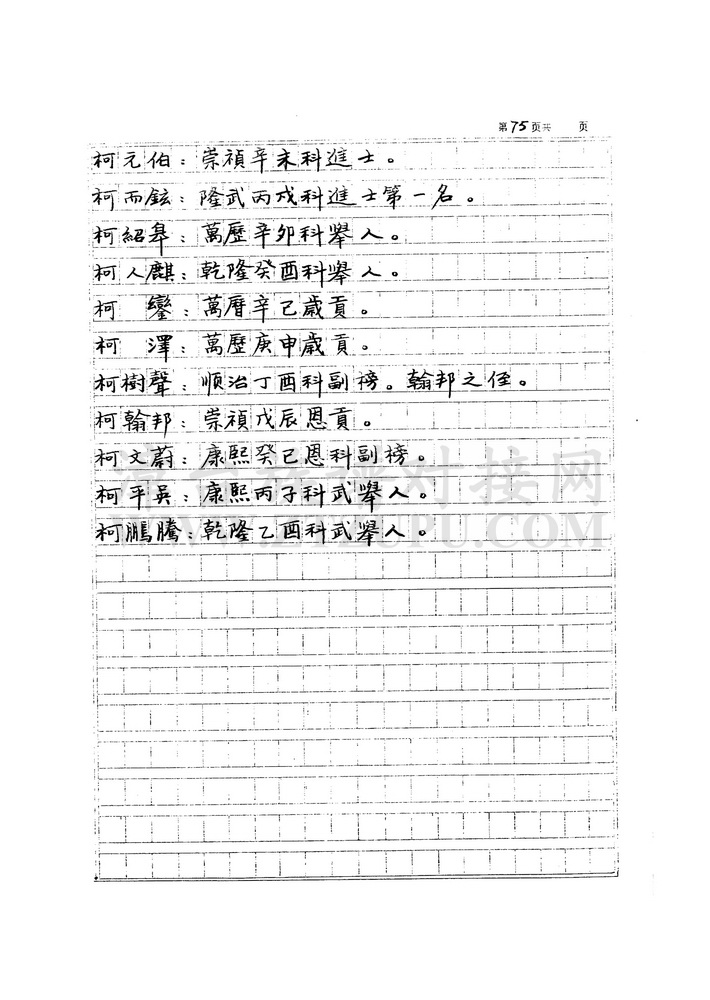 第75页共 页
柯元伯：崇禎辛未科進士。
柯而鉉：隆武丙戌科進士第一名。
柯紹皋：萬歷辛卯科舉人。
柯人麒：乾隆癸酉科舉人。
柯 鑾：萬曆辛己歲貢。
柯 澤：萬歷庚申歲貢。
柯樹聲：順治丁酉科副榜。翰邦之侄。
柯翰邦：崇禎戊辰恩貢。
柯文蔚：康熙癸已恩科副榜。
柯平吳：康熙丙子科武舉人。
柯鵬騰：乾隆乙酉科武舉人。